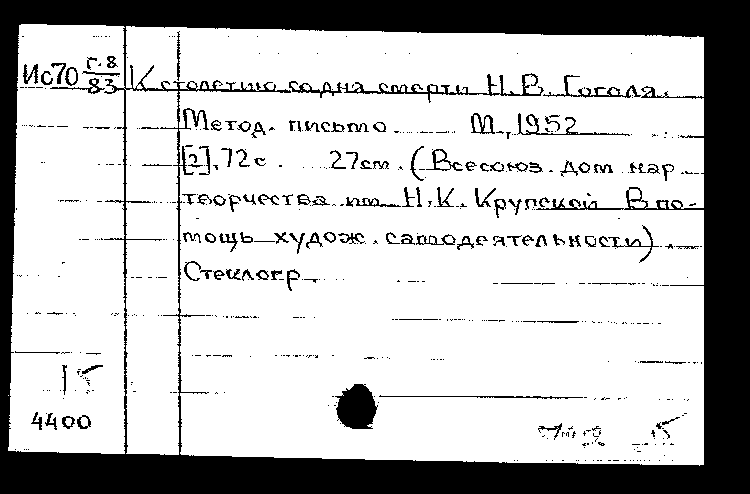 Ис70 Г.8/83 К столетию со дня смерти Н.В. Гоголя.
Метод. письмо. М., 1952
[2], 72 с. 27 см. (Всесоюз. дом нар
творчества им Н.К. Крупской В по-
мощь худож. самодеятельности).
Стеклогр.
15
4400
15